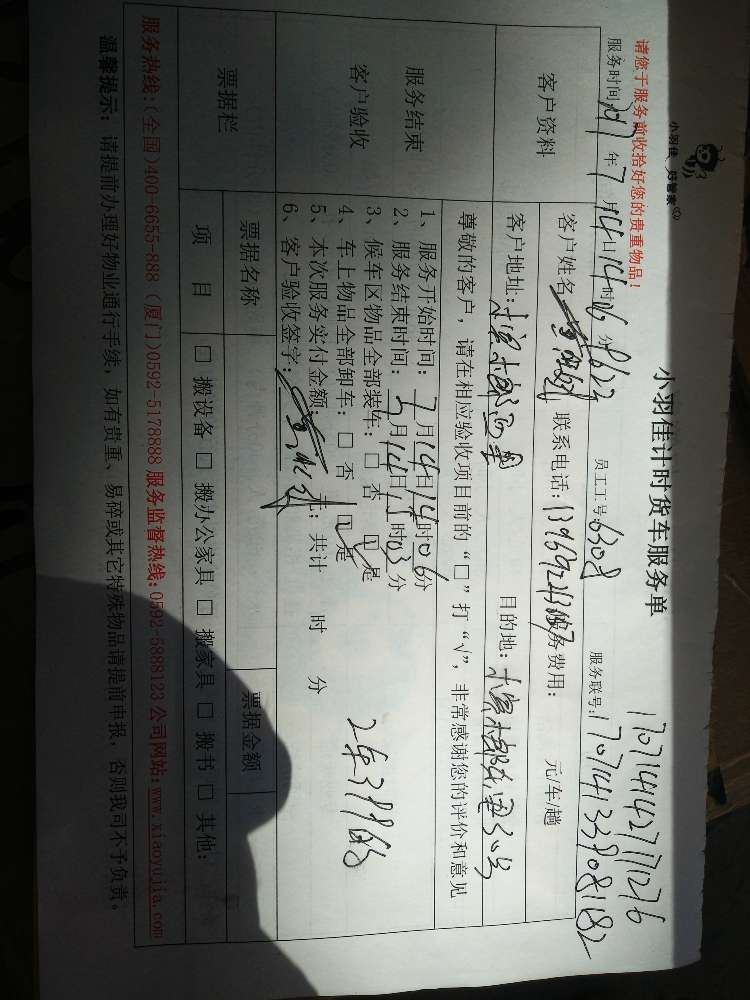 小羽佳 好管家
小羽佳计时货车服务单
请您于服务前收拾好您的贵重物品!
17071414427171276
服务时间:2017年7月14日14时06分 员工工号:6308 服务联号:17071413390818​2
客户资料
客户姓名: 联系电话: 服务费用: 元/车/趟
客户地址: 目的地:
尊敬的客户,请在相应验收项目前的“□”打“√”,非常感谢您的评价和意见
服务结束
客户验收
1、服务开始时间:7月14日14时06分
2、服务结束时间:7月14日15时03分
3、候车区物品全部装车:□ 否 □ 是
4、车上物品全部卸车:□ 否 □ 是
5、本次服务实付金额: 元;共计 时 分
6、客户验收签字:
票据栏
票据名称 票据金额
项 目 □ 搬设备 □ 搬办公家具 □ 搬家具 □ 搬书 □ 其他:
服务热线:(全国)400-6655-888 (厦门)0592-5178888 服务监督热线:0592-5888123 公司网站:www.xiaoyujia.com
温馨提示:请提前办理好物业通行手续,如有贵重、易碎或其它特殊物品请提前申报,否则我司不予负责。